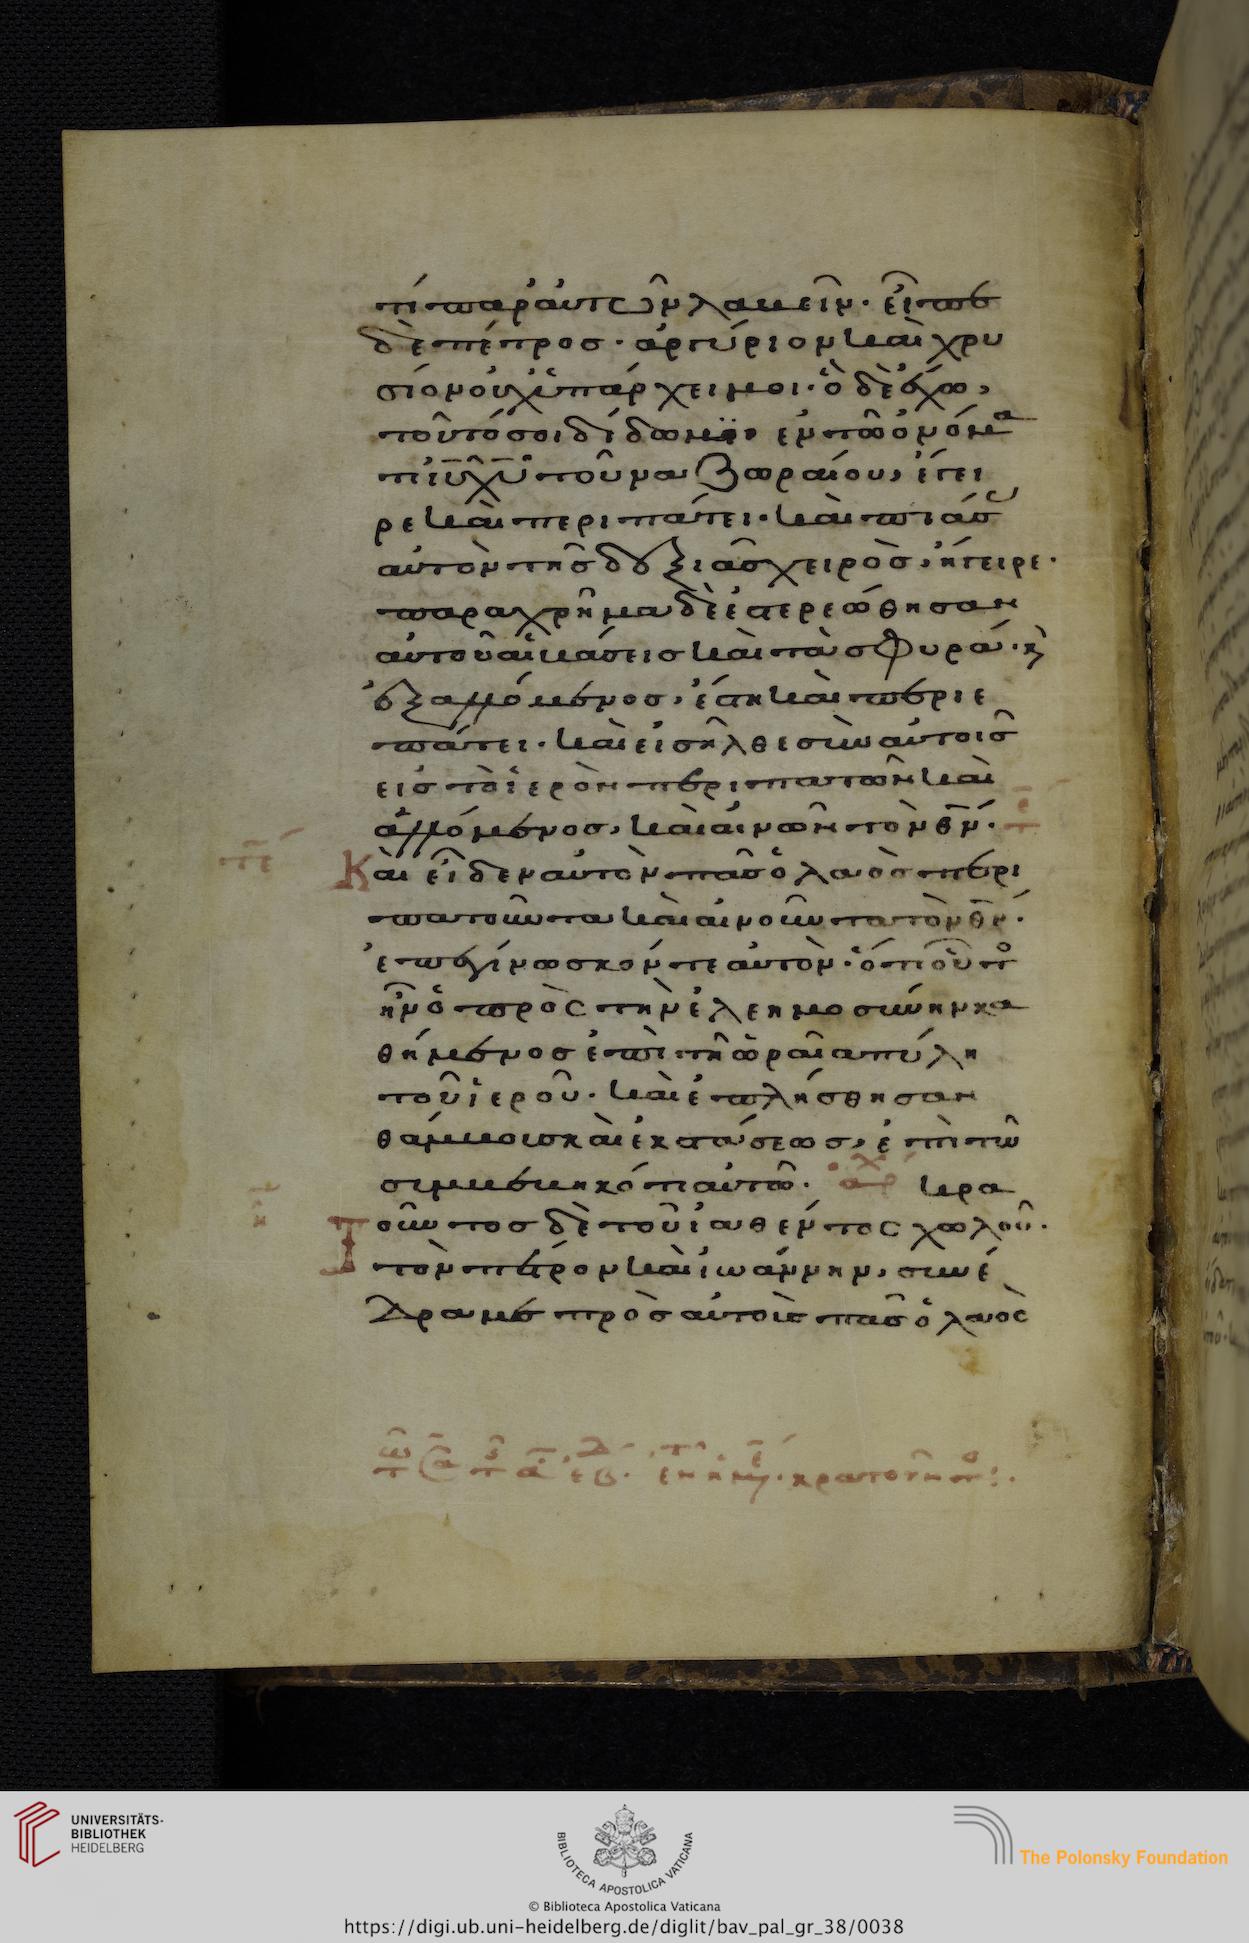 τι παρ' αὐτῶν λαβεῖν· εἶπε
δὲ πέτρος· ἀργύριον καὶ χρυ
σίον οὐχ ὑπάρχει μοι· ὃ δὲ ἔχω,
τοῦτό σοι δίδωμι· ἐν τῶ ὀνόμα
τι ἰ̅υ̅ χ̅υ̅ τοῦ ναζωραίου, ἔγει
ρε καὶ περιπάτει· καὶ πιάσ
αὐτὸν τῆς δεξιᾶς χειρὸς, ἤγειρε·
παραχρῆμα δὲ ἐστερεώθησαν
αὐτοῦ αἱ βάσεις καὶ τὰ σφυρά· κ
ἐξαλλόμενος, ἔστη καὶ περιε
πάτει· καὶ εἰσῆλθε σὺν αὐτοῖς
εἰς τὸ ἱερὸν περιπατῶν καὶ
ἁλλόμενος, καὶ αἰνῶν τὸν θ̅ν̅·
Καὶ εἶδεν αὐτὸν πᾶς ὁ λαὸς περι
πατοῦντα καὶ αἰνοῦντα τὸν θ̅ν̅·
ἐπεγίνωσκόν τε αὐτὸν· ὅτι οὗτ
ἦν ὁ πρὸς τὴν ἐλεημοσύνην κα
θήμενος ἐπὶ τῆ ὡραία πύλη
τοῦ ἱεροῦ· καὶ ἐπλήσθησαν
θάμβοις καὶ ἐκστάσεως, ἐπὶ τῶ
συμβεβηκότι αὐτῶ· ἀρχ κρα
Τοῦντος δὲ τοῦ ἰαθέντος χωλοῦ·
τὸν πέτρον καὶ ἰωάννην, συνέ
δραμε πρὸς αὐτοὺς πᾶς ὁ λαὸς
© Biblioteca Apostolica Vaticana
UNIVERSITÄTS-
BIBLIOTHEK
HEIDELBERG
BIBLIOTECA APOSTOLICA VATICANA
The Polonsky Foundation
https://digi.ub.uni-heidelberg.de/diglit/bav_pal_gr_38/0038